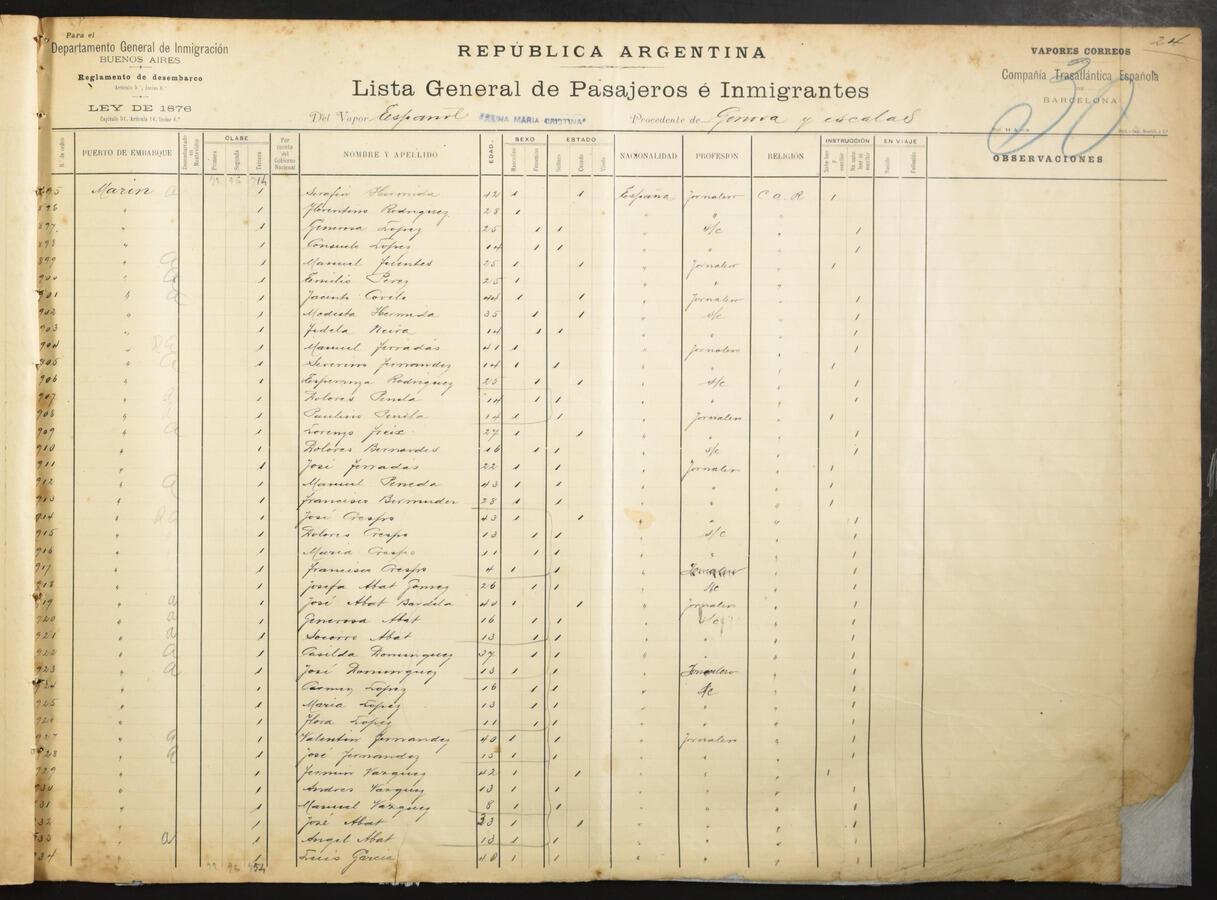 Para el
Departamento General de Inmigración
BUENOS AIRES
Reglamento de desembarco
Artículo 5.°, Inciso 8.°
LEY DE 1876
Capítulo 51, Artículo 14, Inciso 6.°
REPÚBLICA ARGENTINA
Lista General de Pasajeros é Inmigrantes
Del Vapor Español "REINA MARIA CRISTINA" Procedente de Genova y escalas
24
VAPORES CORREOS
DE LA
Compañía Trasatlántica Española
DE
BARCELONA
30
OBSERVACIONES
N.° de orden PUERTO DE EMBARQUE CLASE Primera Segunda Tercera Por cuenta del Gobierno Nacional NOMBRE Y APELLIDO EDAD. SEXO Masculino Femenino ESTADO Soltero Casado Viudo NACIONALIDAD PROFESION RELIGIÓN INSTRUCCIÓN EN VIAJE Nacido Fallecido
895 Marin a 1 Serafin Hermida 42 1 1 España Jornalero C. A. R 1
896 " 1 Florentino Rodriguez 28 1 " " "
897 " 1 Generosa Lopez 25 1 1 " s/c " 1
898 " 1 Consuelo Lopez 14 1 1 " " " 1
899 " a 1 Manuel Fuentes 25 1 1 " Jornalero " 1
900 " a 1 Emilio Perez 25 1 " " "
901 " a 1 Jacinto Covelo 44 1 1 " Jornalero " 1
902 " 1 Modesta Hermida 35 1 1 " s/c " 1
903 " 1 Fidela Neira 14 1 1 " " " 1
904 " 1 Manuel Ferradas 41 1 " Jornalero " 1
905 " a 1 Severino Fernandez 14 1 1 " " " 1
906 " 1 Esperanza Rodriguez 25 1 1 " s/c " 1
907 " 1 Dolores 14 1 1 " " " 1
908 " 1 Paulino 14 1 1 " Jornalero " 1
909 " a 1 Lorenzo Freix 27 1 1 " " " 1
910 " 1 Dolores Bernardes 16 1 1 " s/c " 1
911 " 1 José Ferradas 22 1 1 " Jornalero " 1
912 " a 1 Manuel Peneda 43 1 1 " " " 1
913 " 1 Francisco Bermudez 28 1 1 " " " 1
914 " 1 José Crespo 43 1 1 " " " 1
915 " 1 Dolores Crespo 13 1 1 " s/c " 1
916 " 1 Maria Crespo 11 1 1 " " " 1
917 " 1 Francisco Crespo 4 1 1 " " 1
918 " 1 Josefa Abat Gomez 26 1 1 " s/c " 1
919 " a 1 José Abat Bardela 40 1 1 " Jornalero " 1
920 " a 1 Generosa Abat 16 1 1 " s/c " 1
921 " a 1 Socorro Abat 13 1 1 " " " 1
922 " a 1 Casilda Dominguez 37 1 1 " " " 1
923 " a 1 José Dominguez 13 1 1 " Jornalero " 1
924 " 1 Carmen Lopez 16 1 1 " s/c " 1
925 " 1 Maria Lopez 13 1 1 " " " 1
926 " 1 Flora Lopez 11 1 1 " " " 1
927 " a 1 Valentin Fernandez 40 1 1 " Jornalero " 1
928 " a 1 José Fernandez 15 1 1 " " " 1
929 " 1 Fermin Vazquez 42 1 1 " " " 1
930 " 1 Andres Vazquez 13 1 1 " " " 1
931 " 1 Manuel Vazquez 8 1 1 " " " 1
932 " 1 José Abat 33 1 1 " " " 1
933 " a 1 Angel Abat 13 1 1 " " " 1
934 " 1 Luis Garcia 40 1 1 " " " 1